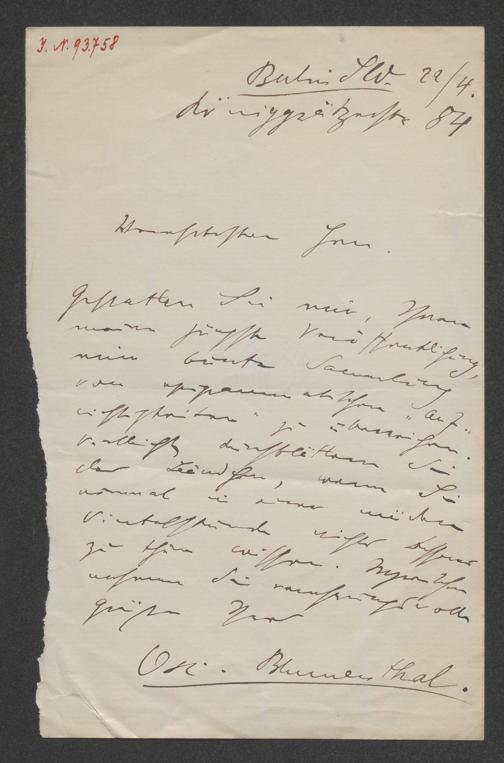 I. N. 93.758
Berlin SW. 22/4.
Königgrätzerstr 84
Hochgeehrter Herr.
Gestatten Sie mir, Ihnen
meine jüngste Veröffentlichung,
eine bunte Sammlung
von epigrammatischen "Auf-
richtigkeiten" zu überreichen.
Vielleicht durchblättern Sie
das Bändchen, wenn Sie
einmal in einer müden
Viertelstunde nichts besseres
zu thun wissen. Inzwischen
nehmen Sie verehrungsvolle
Grüße Ihres
Osc. Blumenthal.